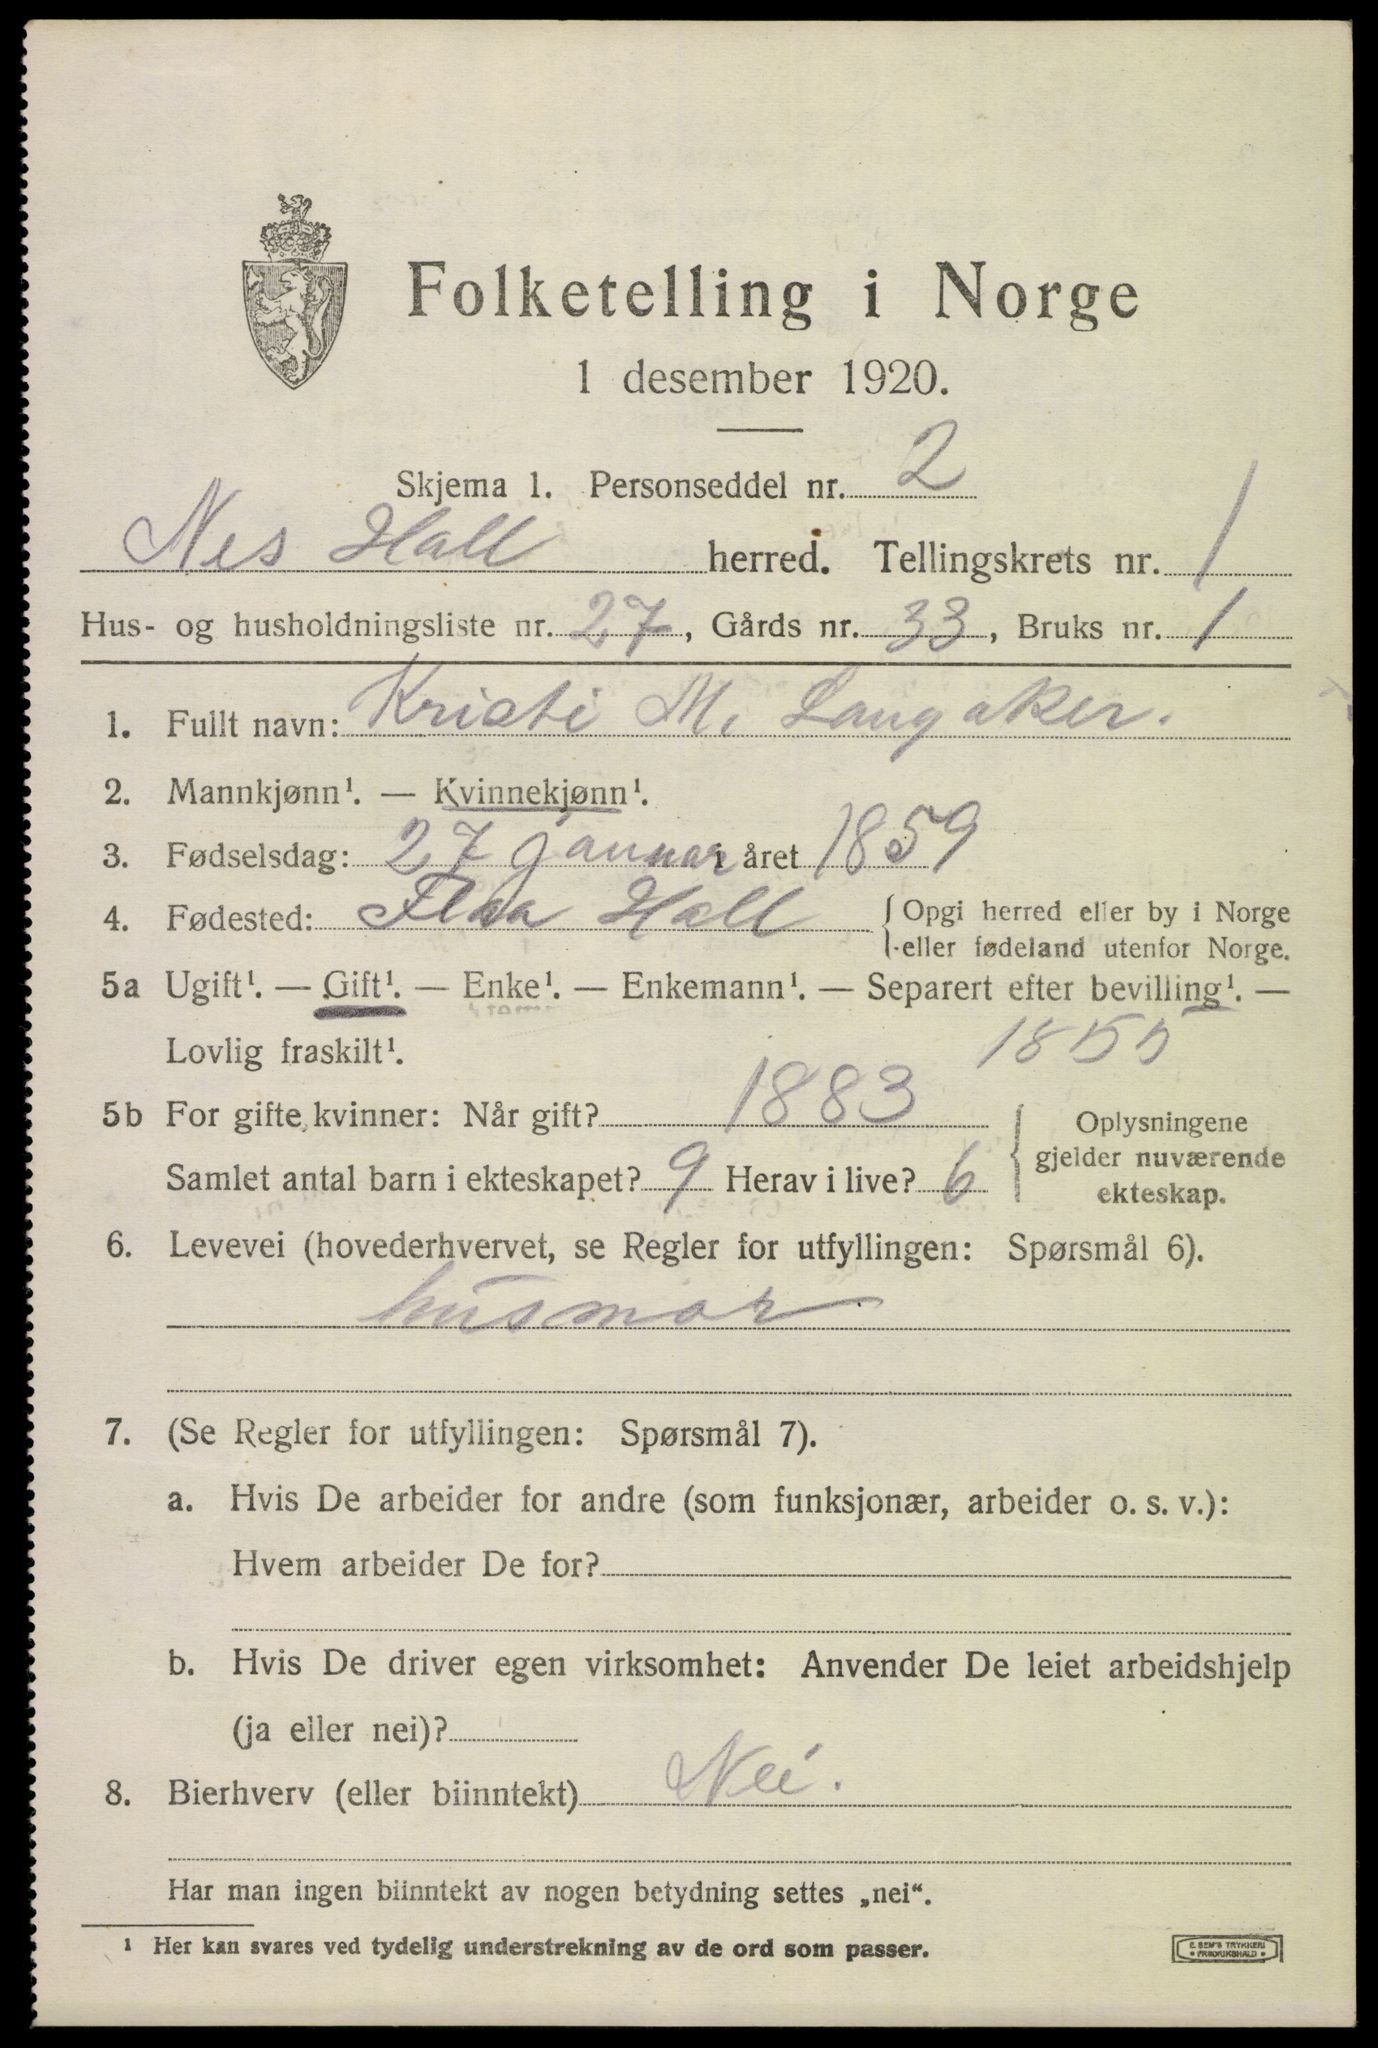 Folketelling i Norge
1 desember 1920.
Skjema 1. Personseddel nr. 2
Nes Hall herred. Tellingskrets nr. 1
Hus- og husholdningsliste nr. 27, Gårds nr. 33, Bruks nr. 1
1. Fullt navn: Kristi M. Langaker.
2. Mannkjønn¹. — Kvinnekjønn¹.
3. Fødselsdag: 27 januar i året 1859
4. Fødested: Flaa Hall { Opgi herred eller by i Norge
eller fødeland utenfor Norge.
5a Ugift¹. — Gift¹. — Enke¹. — Enkemann¹. — Separert efter bevilling¹. —
Lovlig fraskilt¹. 1855
5b For gifte kvinner: Når gift? 1883 { Oplysningene
gjelder nuværende
Samlet antal barn i ekteskapet? 9 Herav i live? 6 ekteskap.
6. Levevei (hovederhvervet, se Regler for utfyllingen: Spørsmål 6).
husmor
7. (Se Regler for utfyllingen: Spørsmål 7).
a. Hvis De arbeider for andre (som funksjonær, arbeider o. s. v.):
Hvem arbeider De for?
b. Hvis De driver egen virksomhet: Anvender De leiet arbeidshjelp
(ja eller nei)?
8. Bierhverv (eller biinntekt) Nei.
Har man ingen biinntekt av nogen betydning settes „nei“.
¹ Her kan svares ved tydelig understrekning av de ord som passer.
E. SEM'S TRYKKERI
• FREDRIKSHALD •